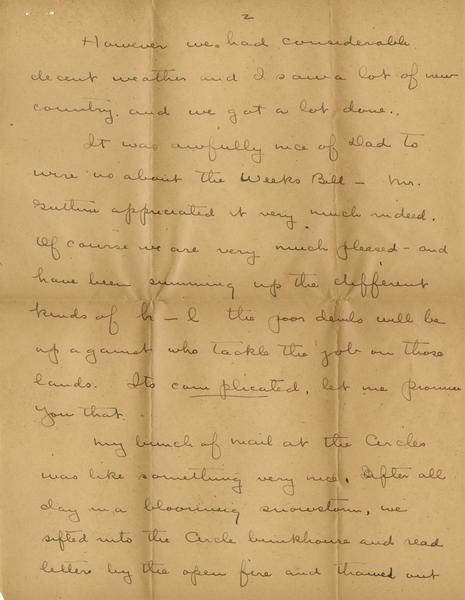 2
However we had considerable
decent weather and I saw a lot of new
country, and we got a lot done.
It was awfully nice of Dad to
wire us about the Weeks Bill - Mr.
Guthrie appreciated it very much indeed.
Of course we are very much pleased - and
have been summing up the different
kinds of h - l the poor devils will be
up against who tackle the job on those
lands. Its complicated, let me promise
you that.
My bunch of mail at the Circles
was like something very nice. After all
day in a blooming snowstorm, we
sifted into the Circle bunkhouse and read
letters by the open fire and thawed out